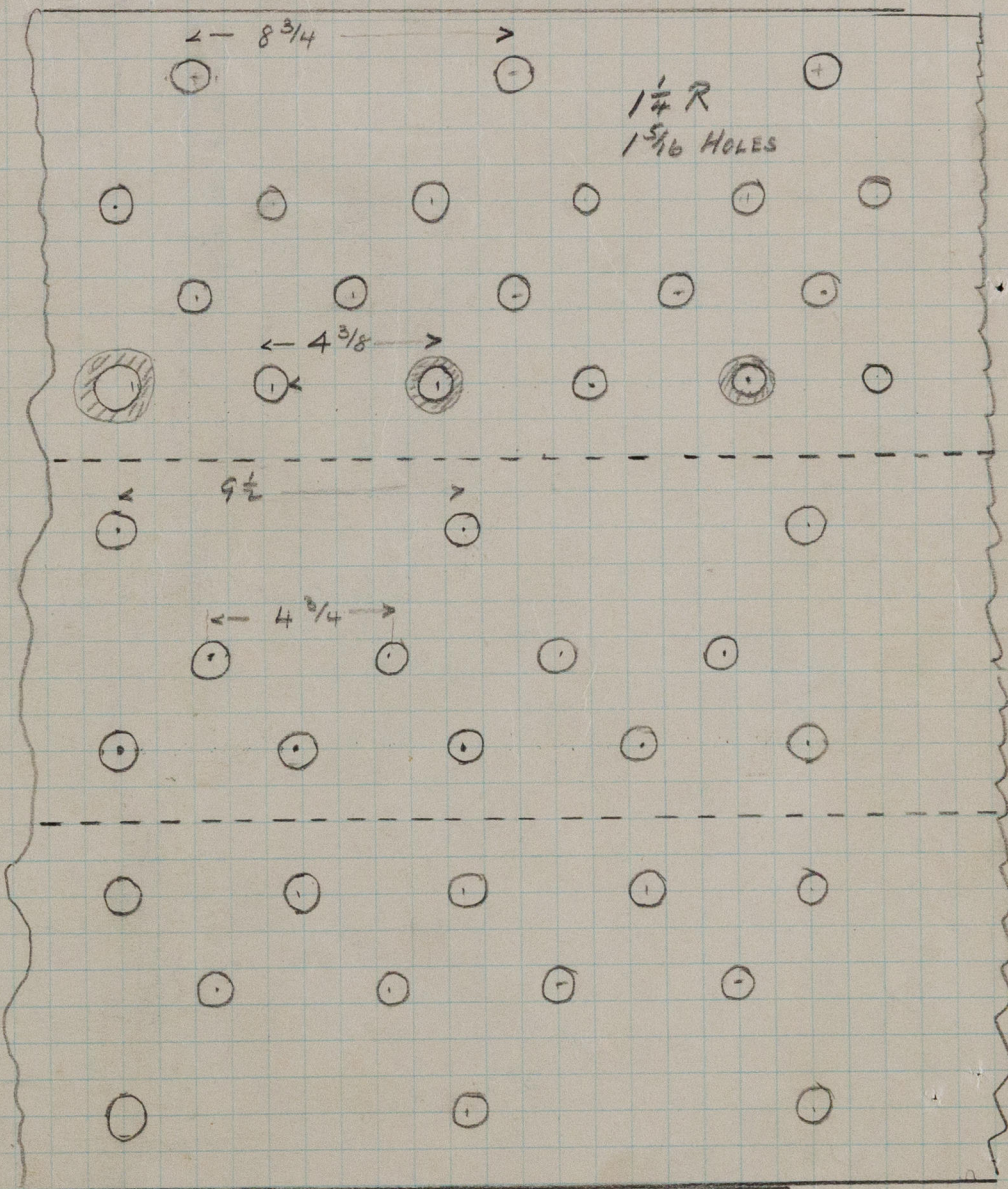 8 3/4
1 1/4 R
1 5/16 HOLES
4 3/8
9 1/2
4 3/4